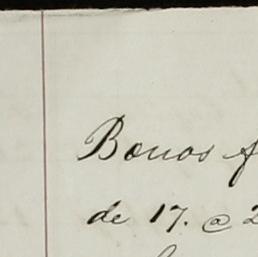 Bonos f
de 17. @ 2